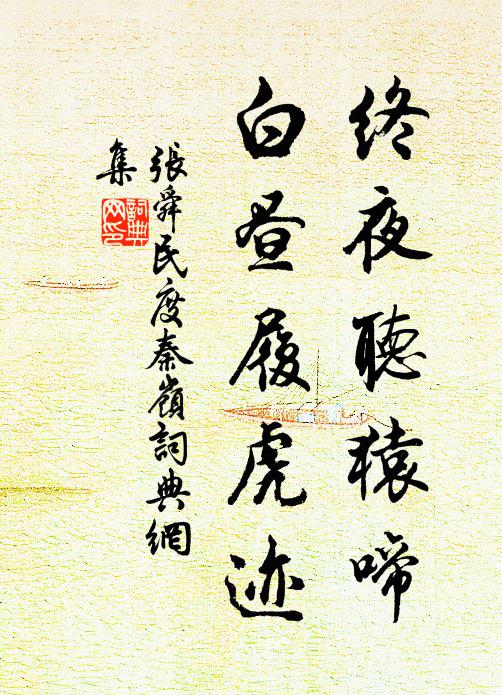 終夜聽猿啼
白昼履虎迹
張舜民度秦嶺詞典網
集
詞典
网印